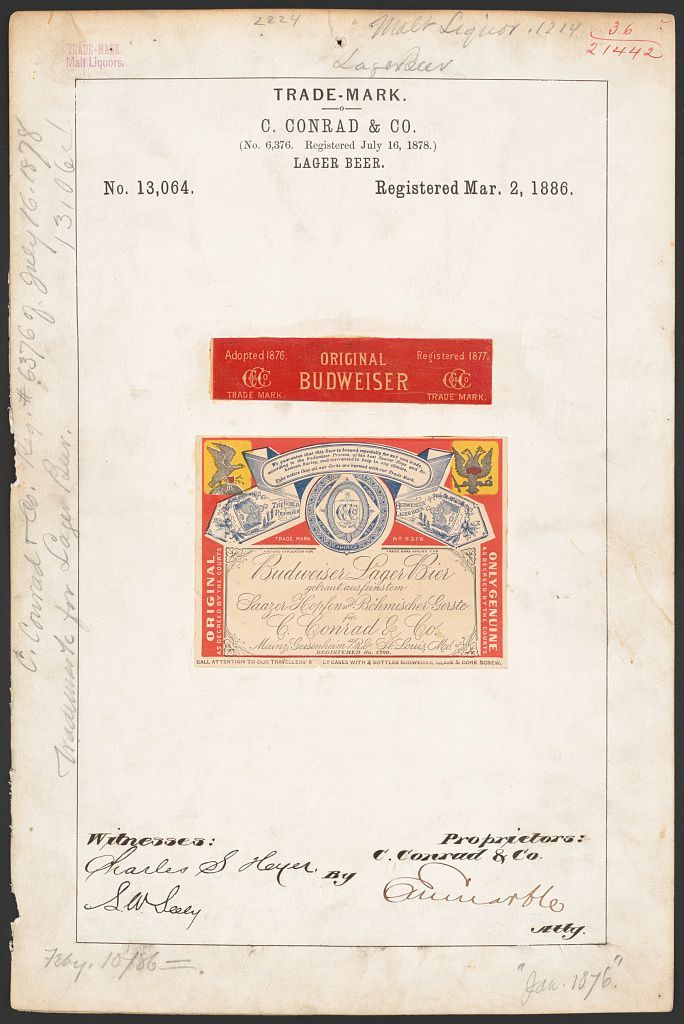 2224
Malt Liquor. 1214
36
21442
TRADE-MARK.
Malt Liquors.
Lager Beer
TRADE-MARK.
C. CONRAD & CO.
(No. 6,376. Registered July 16, 1878.)
LAGER BEER.
No. 13,064. Registered Mar. 2, 1886.
C. Conrad & Co. Reg. # 6376 of July 16, 1878
13,064
Trademark for Lager Beer.
Adopted 1876. ORIGINAL Registered 1877.
BUDWEISER
TRADE MARK. TRADE MARK.
We guarantee that this Beer is brewed especially for our own trade,
according to the Budweiser Process, of the best Saazer Hops and Bo-
hemian Barley, and warranted to keep in any climate.
Take notice that all our Corks are burned with our Trade Mark.
THE WORLD
RENOWNED
BUDWEISER
LAGER BEER
CCCo
AMERICA
TRADE MARK No 6376
TRADE MARK APPLIED FOR
ORIGINAL
AS DECREED BY THE COURTS
ONLY GENUINE
AS DECREED BY THE COURTS
Budweiser Lager Bier
gebraut aus feinstem
Saazer Hopfen und Böhmischer Gerste
für
C. Conrad & Co.
Mainz, Geisenheim a/R. & St. Louis, Mo.
REGISTERED No. 1799.
CALL ATTENTION TO OUR TRAVELLERS' LY CASES WITH 4 BOTTLES BUDWEISER, GLASS & CORK SCREW.
Witnesses: Proprietors:
Charles S Heyer. C. Conrad & Co.
By
S.W. Seely
Atty.
Feby. 10/86
"Jan. 1876."